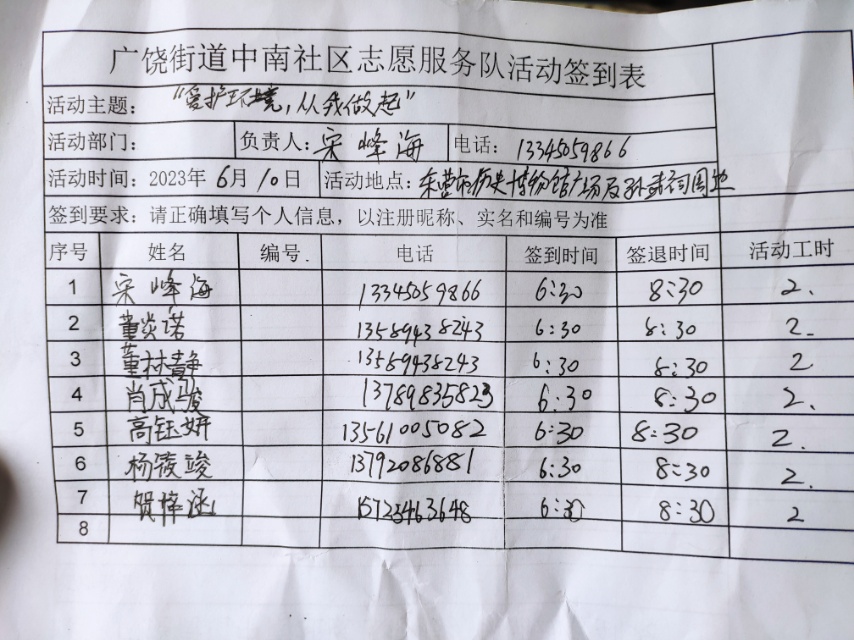 广饶街道中南社区志愿服务队活动签到表
活动主题： “爱护环境，从我做起”
活动部门： 负责人：宋峰海 电话：13345059866
活动时间：2023年6月10日 活动地点：东营市历史博物馆广场及孙武祠周边
签到要求：请正确填写个人信息，以注册昵称、实名和编号为准
序号 姓名 编号. 电话 签到时间 签退时间 活动工时
1 宋峰海 13345059866 6:30 8:30 2.
2 董炎诺 13589438243 6:30 8:30 2.
3 董林静 13589438243 6:30 8:30 2
4 肖成骏 13789835823 6:30 8:30 2.
5 高钰妍 13561005082 6:30 8:30 2.
6 杨竣 13792086881 6:30 8:30 2.
7 贺涵 15723463648 6:30 8:30 2
8